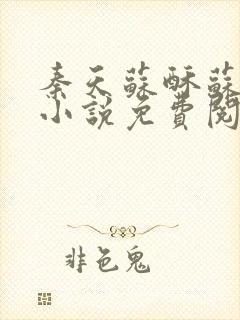 秦天蘇酥蘇
小說免費閱
非色鬼